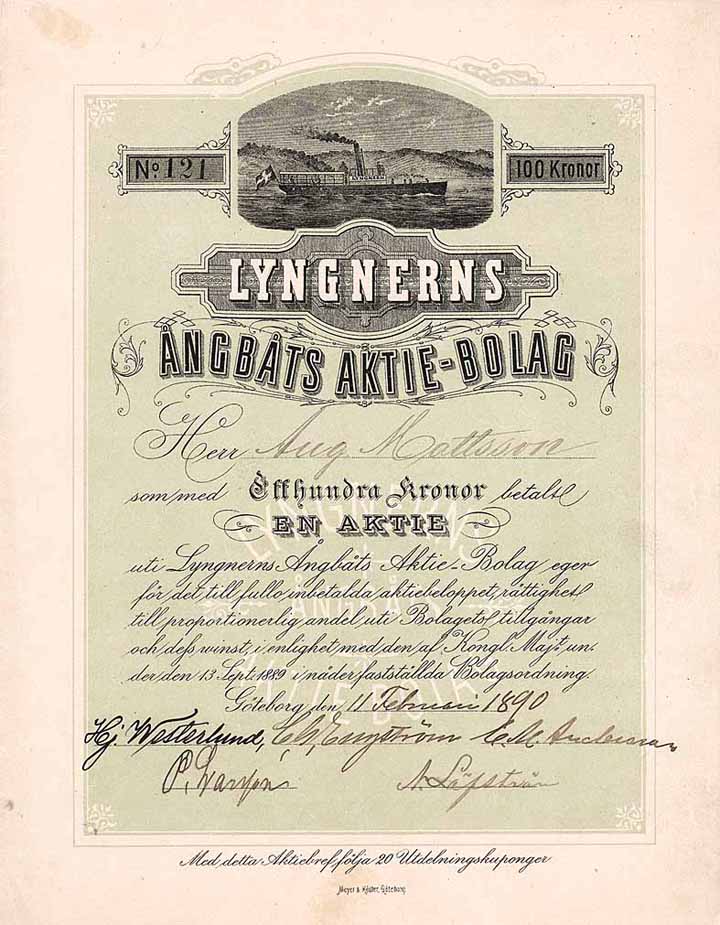 No. 121
100 Kronor
LYNGNERN
LYNGNERNS
ÅNGBÅTS AKTIE-BOLAG
Herr Aug Mattsson
som med Etthundra Kronor betalt
EN AKTIE
uti Lyngnerns Ångbåts Aktie-Bolag eger
för det till fullo inbetalda aktiebeloppet, rättighet
till proportionerlig andel uti Bolagets tillgångar
och dess winst, i enlighet med den af Kongl. Maj:t un-
der den 13 Sept. 1889 i nåder fastställda Bolagsordning.
Göteborg den 11 Februari 1890
Hj. Westerlund, Engström C. M. Andersson
P. Larsson A. Löfström
Med detta Aktiebref följa 20 Utdelningskuponger
Meyer & Köster, Göteborg
LYNGNERNS
ÅNGBÅTS